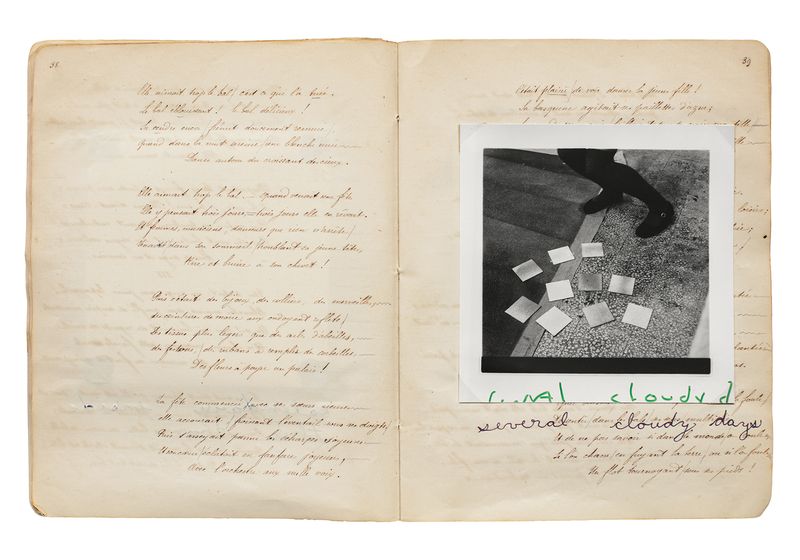 38
Elle aimait trop le bal, c'est ce qui l'a tuée.
Le bal éblouissant ! le bal délicieux !
Sa cendre encor frémit doucement remuée,
Quand dans la nuit sereine une blanche nuée
Danse autour du croissant des cieux.
Elle aimait trop le bal. — quand venait une fête
Elle y pensait trois jours, trois jours elle en rêvait.
Et femmes, musiciens, danseurs que rien n'arrête,
Venaient dans son sommeil, troublant sa jeune tête,
Rire et bruire à son chevet !
Puis c'était des bijoux, des colliers, des merveilles,
des ceintures de moire aux ondoyants reflets,
Des tissus plus légers que des ails d'abeilles,
des festons, des rubans à remplir des corbeilles,
Des fleurs à payer un palais !
La fête commencée, avec ses sœurs rieuses
elle accourait, froissant l'éventail sous ses doigts,
Puis s'asseyait parmi les écharpes soyeuses
Et son cœur éclatait en fanfares joyeuses,
Avec l'orchestre aux mille voix.
39
C'était plaisir de voir danser la jeune fille !
Sa basquine agitait ses paillettes d'azur;
cloudy d
several cloudy days
Et de ne pas savoir si dans
Si l'on chasse en fuyant la terre, ou si l'on foule
Un flot tournoyant sous ses pieds !